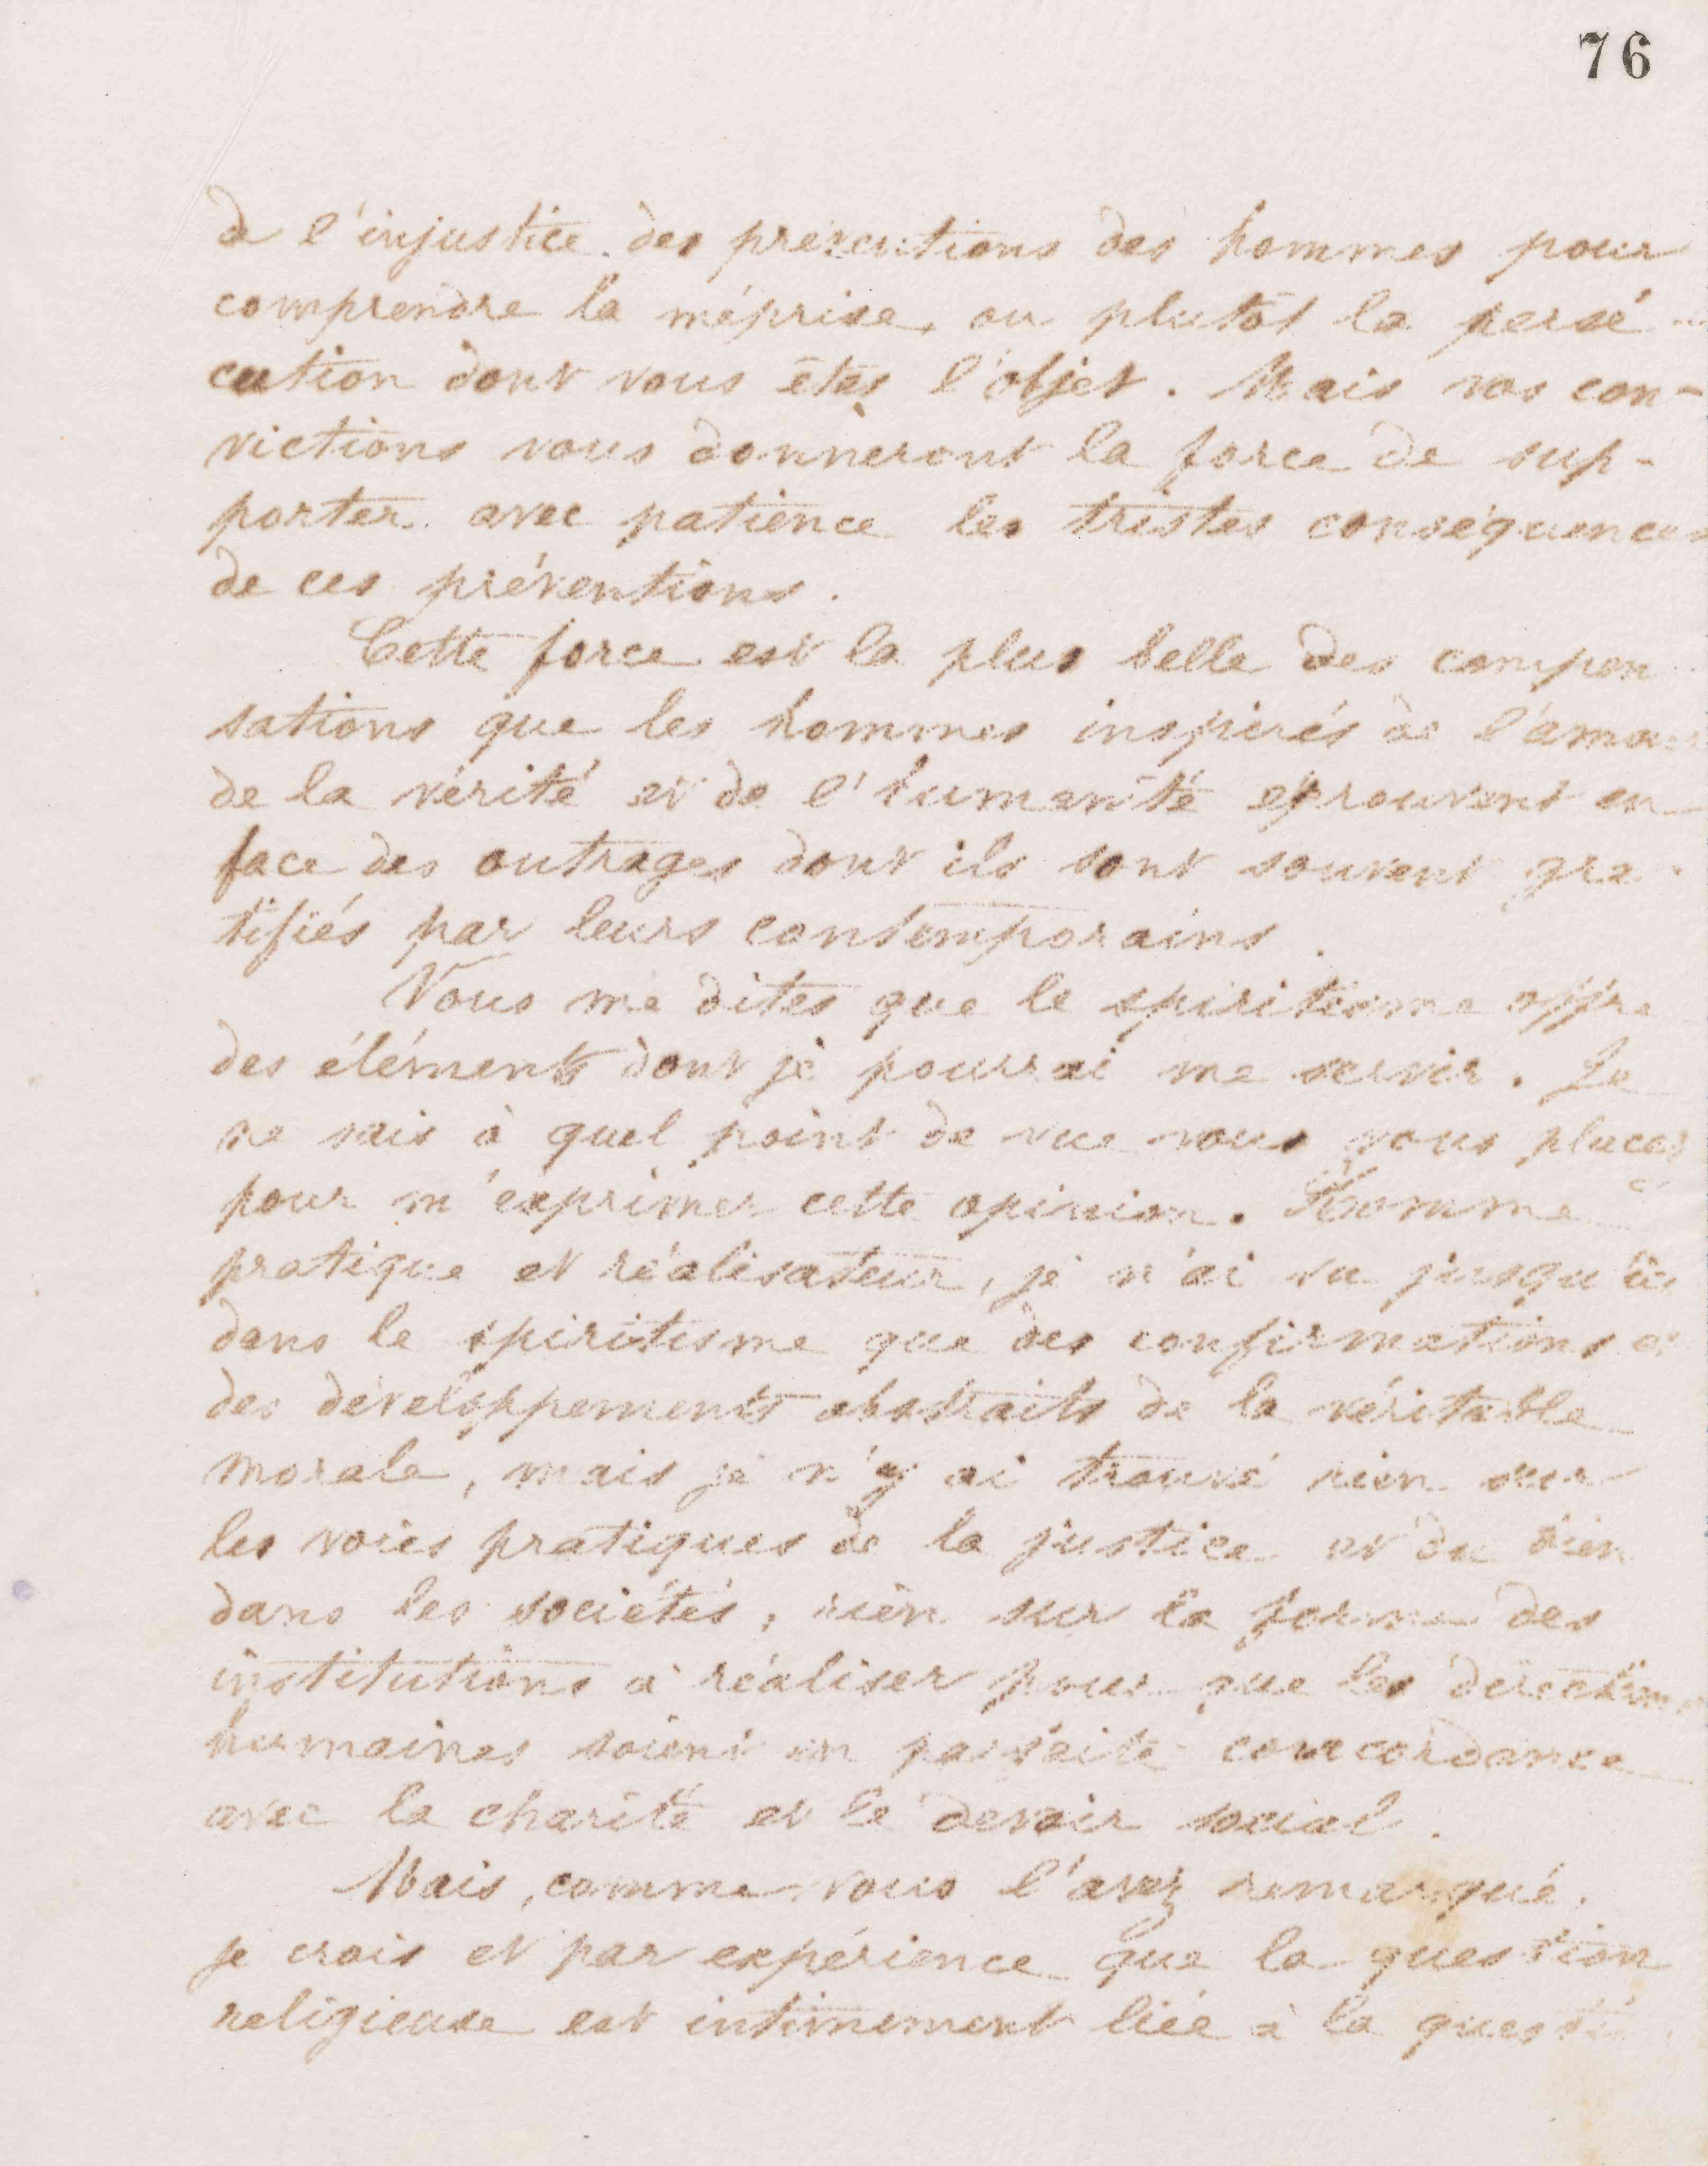 76
de l'injustice des préventions des hommes pour
comprendre la méprise, ou plutôt la persé-
cution dont vous êtes l'objet. Mais vos con-
victions vous donneront la force de sup-
porter avec patience les tristes conséquences
de ces préventions.
Cette force est la plus belle des compen
sations que les hommes inspirés de l'amour
de la vérité et de l'humanité éprouvent en
face des outrages dont ils sont souvent gra-
tifiés par leurs contemporains.
Vous me dites que le spiritisme offre
des éléments dont je pourrai me servir. Je
ne sais à quel point de vue vous vous placez
pour m'exprimer cette opinion. Homme
pratique et réalisateur, je n'ai vu jusqu'ici
dans le spiritisme que des confirmations et
des développements abstraits de la véritable
morale, mais je n'y ai trouvé rien sur
les voies pratiques de la justice et du bien
dans les sociétés, rien sur la forme des
institutions à réaliser pour que les directions
humaines soient en parfaite concordance
avec la charité et le devoir social.
Mais, comme vous l'avez remarqué.
je crois et par expérience que la question
religieuse est intimement liée à la question